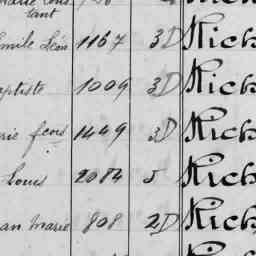 tant
Emile Léon 1167 3D Rich
aptiste 1009 3D Rich
rie fcois 1449 3D Rich
Louis 2084 5 Rich
an Marie 808 2D Rich